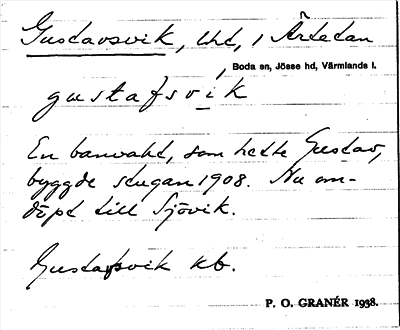 Gustavsvik, lht, i Ärtetan
Boda sn, Jösse hd, Värmlands l.
gustafsvík
En banvakt, som hette Gustav,
byggde stugan 1908. Nu om-
döpt till Sjövik.
Gustafsvik kb.
P. O. GRANÉR 1938.